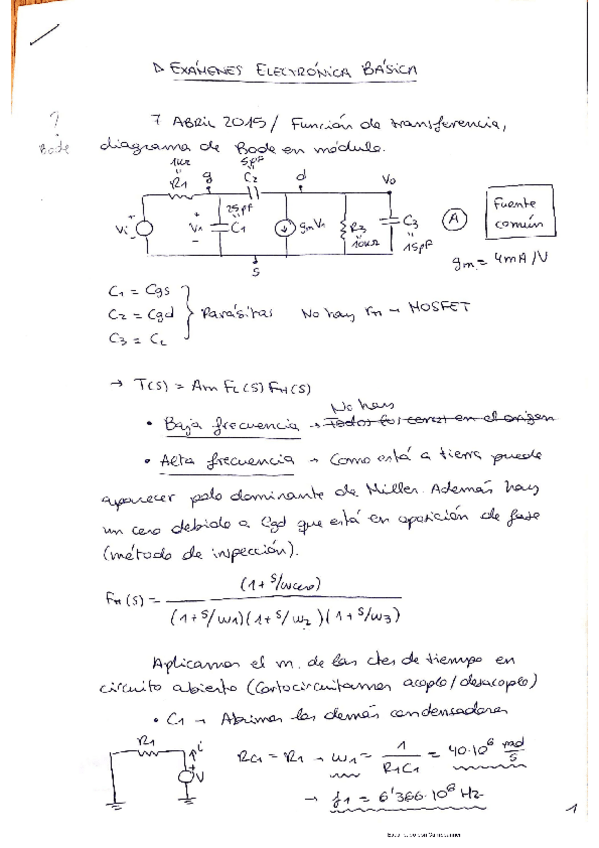 ▷ EXÁMENES ELECTRÓNICA BÁSICA
?
Bode
7 ABRIL 2015 / Función de transferencia,
diagrama de Bode en módulo.
1kΩ
R1
g
5pF
C2
d
Vo
Vi
+
V1
-
25pF
C1
gmV1
R3
10kΩ
C3
15pF
S
A
Fuente
común
gm = 4mA/V
C1 = Cgs
C2 = Cgd
C3 = CL
Parásitas No hay rπ → MOSFET
→ T(s) = Am FL(s) FH(s)
No hay
• Baja frecuencia → Todos los ceros en el origen
• Alta frecuencia → Como está a tierra puede
aparecer polo dominante de Miller. Además hay
un cero debido a Cgd que está en oposición de fase
(método de inspección).
FH(s) = (1 + s/ωcero) / (1 + s/ω1)(1 + s/ω2)(1 + s/ω3)
Aplicamos el m. de las ctes de tiempo en
circuito abierto (Cortocircuitamos acoplo/desacoplo)
• C1 → Abrimos los demás condensadores
R1
i
V
RC1 = R1 → ω1 = 1 / R1C1 = 40·10⁶ rad/s
→ f1 = 6'366·10⁶ Hz
1